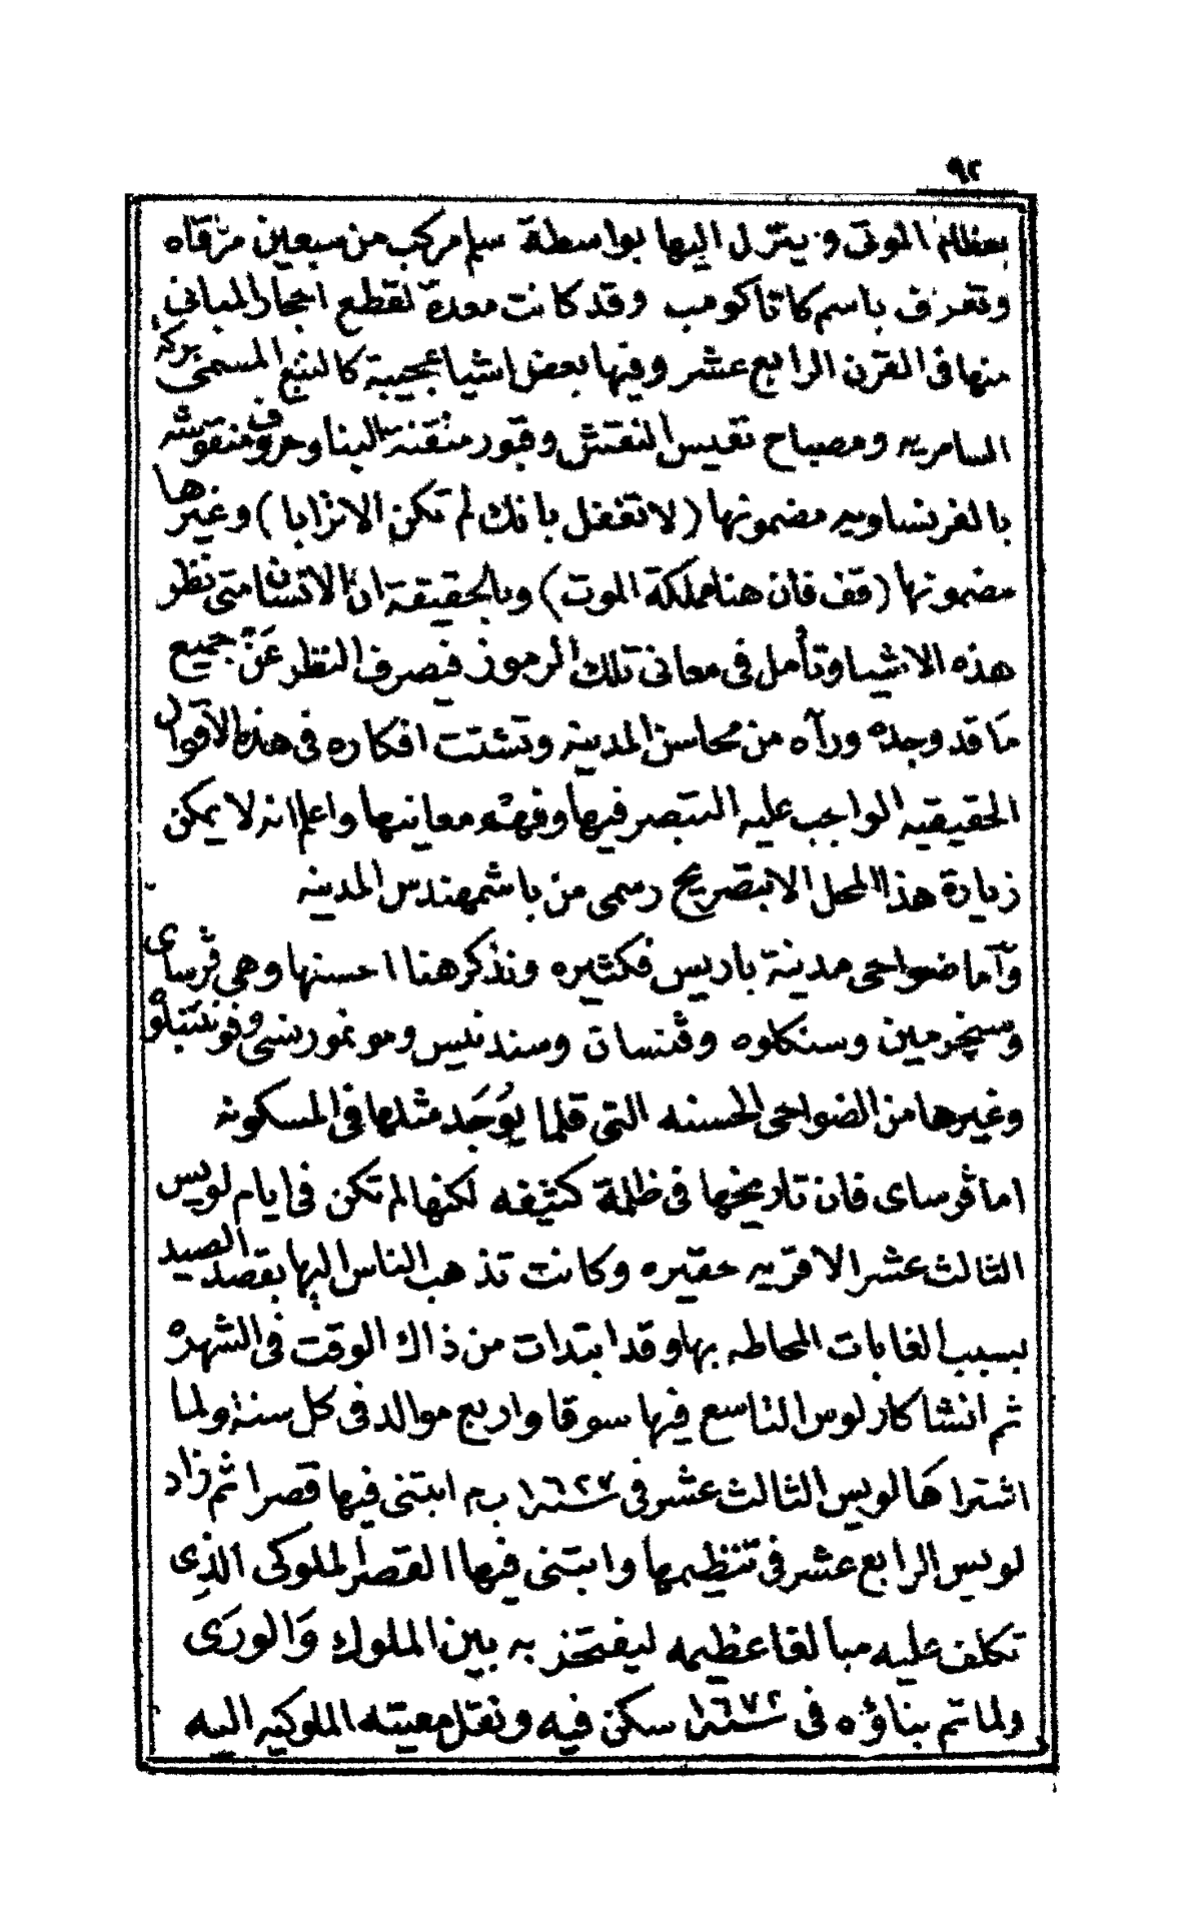 ٩٢
بعظام الموتى وينزل اليها بواسطة سلم مركب من سبعين مرقاه
وتعرف باسم كاتاكومب وقد كانت معدة لقطع احجار المبانى
منها فى القرن الرابع عشر وفيها بعض اشيا عجيبة كالنبع المسمى بركة
السامريه ومصباح نفيس النقش وقبور متقنة البنا وحروف منقوشه
بالفرنساويه مضمونها (لا تغفل بانك لم تكن الا ترابا) وغيرها
مضمونها (قف فان هنا مملكة الموت) وبالحقيقة ان الانسان متى نظر
هذه الاشيا وتأمل فى معانى تلك الرموز فيصرف النظر عن جميع
ما قد وجده ورآه من محاسن المدينه وتشتت افكاره فى هذه الاقوال
الحقيقيه الواجب عليه التبصر فيها وفهمه معانيها واعلم انه لا يمكن
زيارة هذا المحل الا بتصريح رسمى من باشمهندس المدينه
وأما ضواحى مدينة باريس فكثيره ونذكر هنا احسنها وهى ڤرساى
وسنجرمين وسنكلوه وڤنسان وسندنيس ومونمورنسى وفونتنبلوه
وغيرها من الضواحى الحسنه التى قلما يوجد مثلها فى المسكونه
اما ڤرساى فان تاريخها فى ظلمة كثيفه لكنها لم تكن فى ايام لويس
الثالث عشر الا قريه حقيره وكانت تذهب الناس اليها بقصد الصيد
بسبب الغابات المحاطه بها وقد ابتدات من ذاك الوقت فى الشهره
ثم انشا كارلوس التاسع فيها سوقا واربع موالد فى كل سنة ولما
اشتراها لويس الثالث عشر فى سنة ١٦٢٧ ب م ابتنى فيها قصرا ثم زاد
لويس الرابع عشر فى تنظيمها وابتنى فيها القصر الملوكى الذى
تكلف عليه مبالغا عظيمه ليفتخر به بين الملوك والورى
ولما تم بناؤه فى سنة ١٦٧٢ سكن فيه ونقل معيته الملوكيه اليه